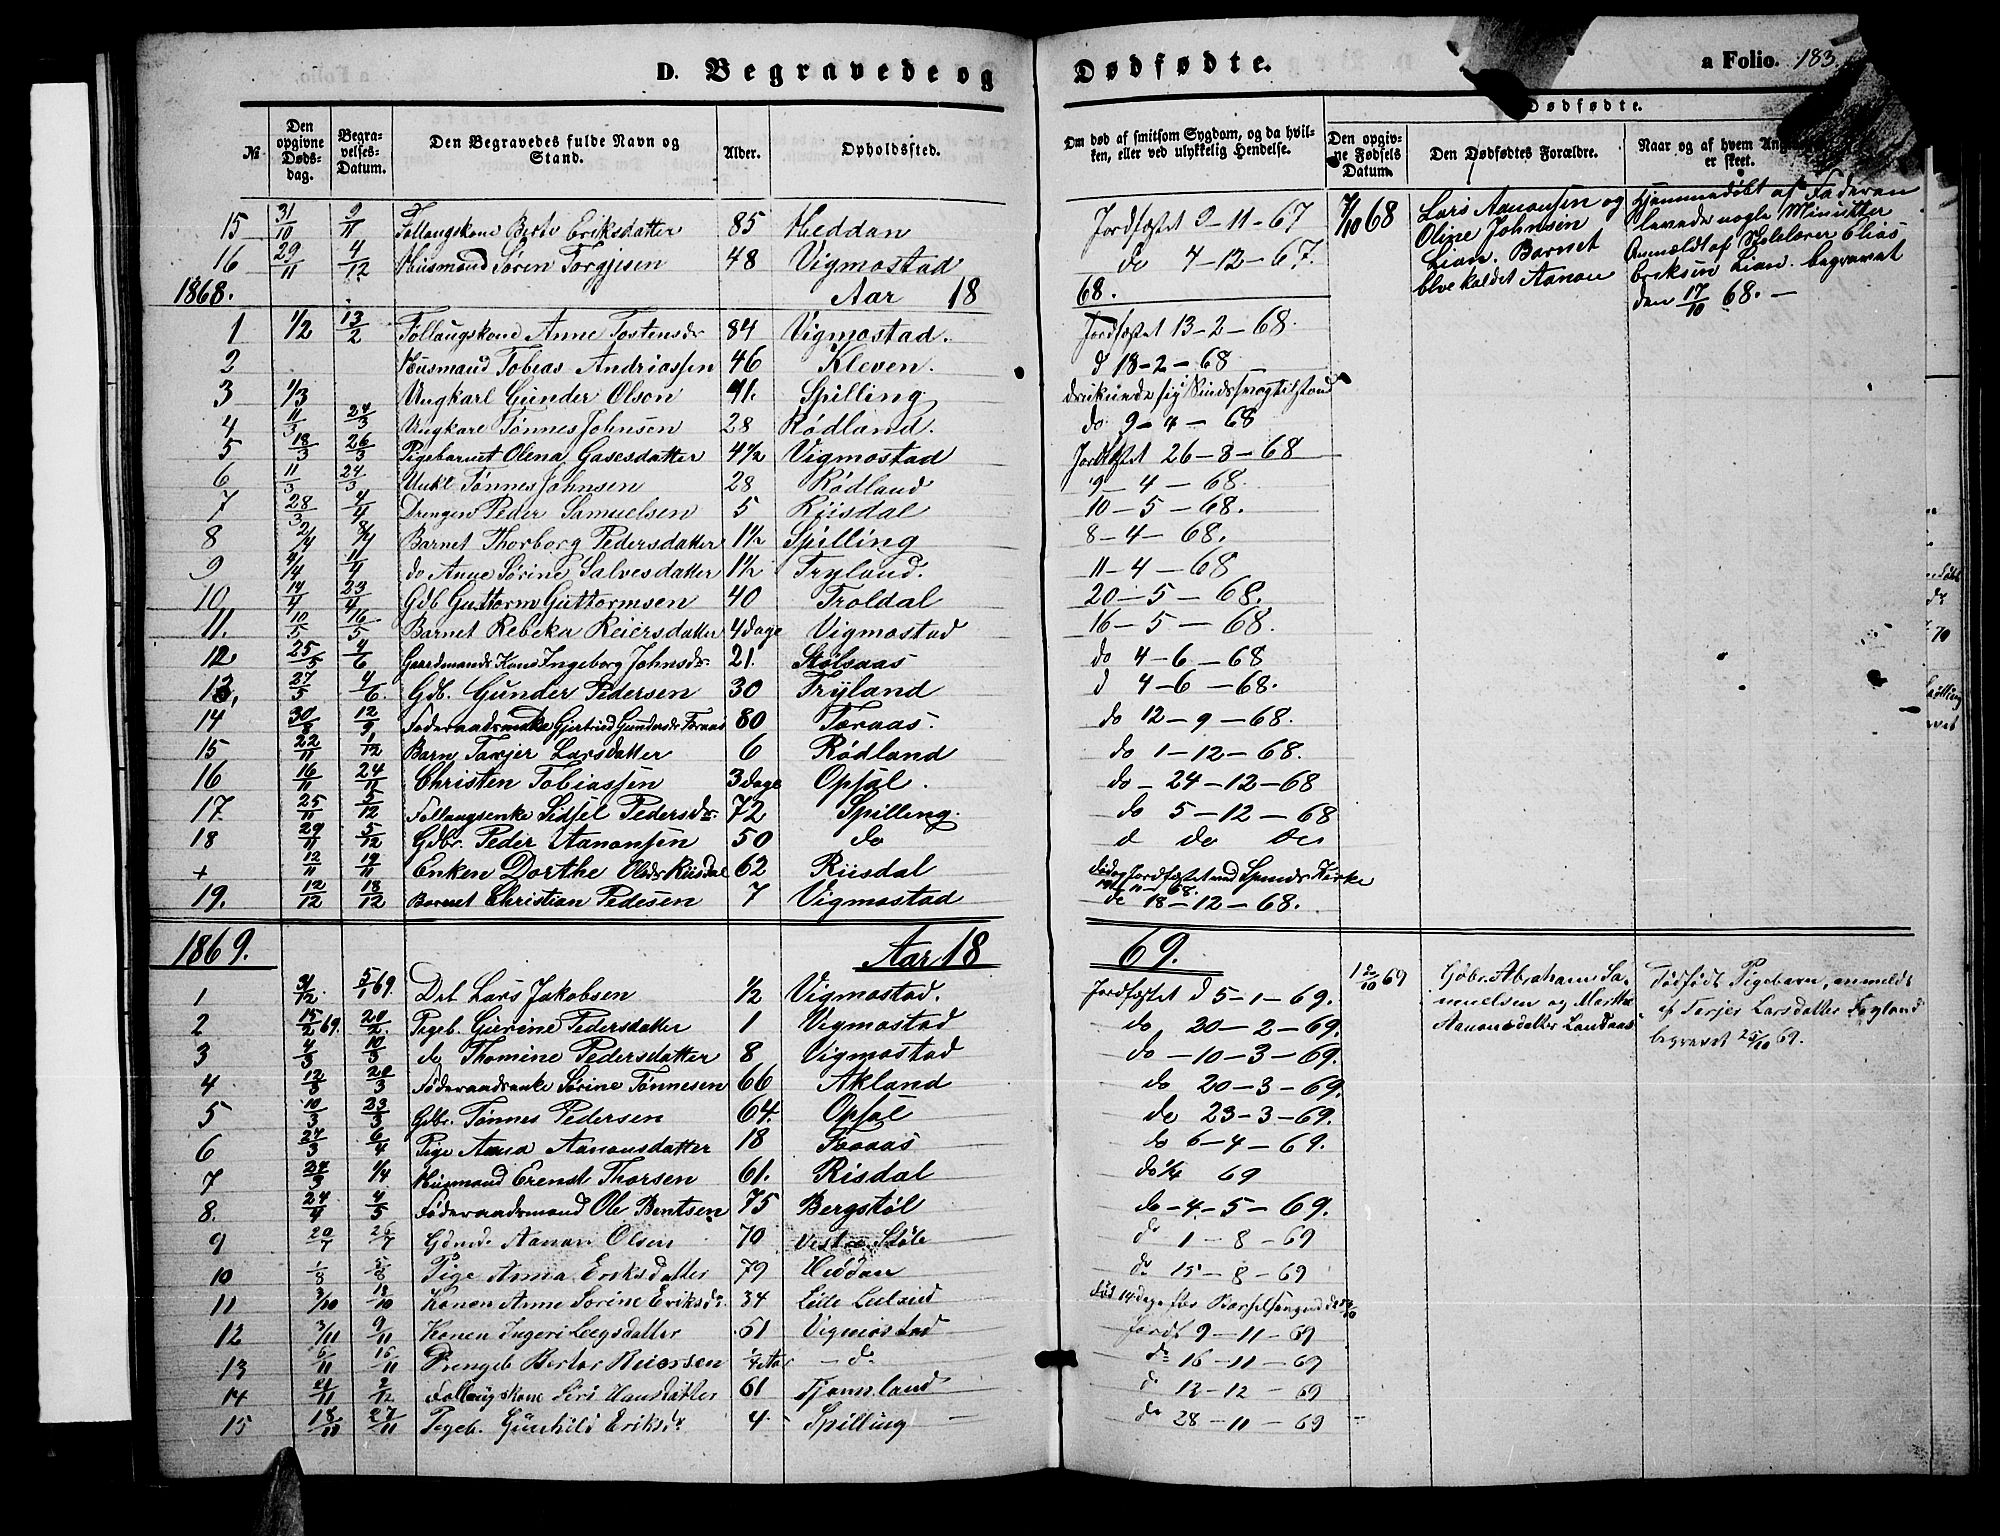 D. Begravede og Dødfødte.
a Folio. 183.
№
Den opgivne Døds-dag.
Begra-velses-Datum.
Den Begravedes fulde Navn og Stand.
Alder.
Opholdssted.
Om død af smitsom Sygdom, og da hvil-ken, eller ved ulykkelig Hendelse.
Dødfødte.
Den opgiv-ne Fødsels Datum.
Den Dødfødtes Forældre.
15 31/10 9/11 Follaugskone Berte Eriksdatter 85 Heddan Jordfæstet 9-11-67
16 29/11 4/12 Husmand Sören Torgjesen 48 Vigmostad do 4-12-67.
7/10 68 Lars Aanonsen og
Oline Johnsen
Lian. Barnet
blve kaldet Aanon
Hjemmedöbt af Faderen
levede nogle Minutter
Anmeldt af Skolelærer Elias
Eriksen Lian. begravet
den 17/10 68. —
1868. Aar 1868.
1 1/2 13/2 Follaugskone Anne Tostensdr 84 Vigmostad. Jordfæstet 13-2-68.
2 Husmand Tobias Andriassen 46 Kleven. d 18-2-68
3 1/3 Ungkarl Gunder Olson 41. Spilling druknede sig i Sindssvag tilstand
4 11/3 24/3 Ungkarl Tönnes Johnsen 28 Rödland. do 9-4-68
5 18/3 26/3 Pigebarnet Olena Gasesdatter 4½ Vigmostad Jordfæstet 26-8-68
6 11/3 24/3 Unkl Tönnes Johnsen 28 Rödland 9-4-68.
7 28/3 4/4 Drengen Peder Samuelsen 5 Riisdal 10-5-68.
8 2/4 8/4 Barnet Thorborg Pedersdatter 1½ Spilling 8-4-68.
9 4/4 11/4 do Anne Sörine Salvesdatter 1½ Tryland. 11-4-68
10 14/4 23/4 Gdb Guttorm Guttormsen 40 Troldal 20-5-68.
11. 10/5 16/5 Barnet Rebeka Reiersdatter 4 dage Vigmostad 16-5-68.
12 25/5 4/6 Gaardmands Kone Ingeborg Johnsdr. 21. Stölsaas do 4-6-68
13. 27/5 4/6. Gdb. Gunder Pedersen 30 Tryland d 4-6-68.
14 30/8 12/9 Föderaadsenke Gjertrud Gundersdr Foraas 80 Foraas. do 12-9-68.
15 22/11 1/12 Barn Tarjer Larsdatter 6 Rödland do 1-12-68.
16 16/11 24/11 Christen Tobiassen 3 dage Opsal. do 24-12-68
17. 25/11 5/12 Follaugsenke Sidsel Pedersdr. 72 Spilling. do 5-12-68
18 29/11 5/12 Gdbr. Peder Aanonsen 50 do d do do
+ 12/11 19/11 Enken Dorthe Olsdr Riisdal 62 Riisdal Jordfæstet ved Spinds Kirke
19. 12/12 18/12 Barnet Christian Pedesen 7 Vigmostad do 18-12-68.
1869. Aar 1869.
1 31/12 5/1 69. Drb Lars Jakobsen 1/2 Vigmostad. Jordfæstet d 5-1-69.
2 15/2 69. 20/2. Pigeb. Gurine Pedersdatter 1 Vigmostad do 20-2-69.
3 4/3 10/3 do Thomine Pedersdatter 8 Vigmostad do -10-3-69.
4 12/3 20/3 Föderaadsenke Sörine Tönnesen 66 Akland do 20-3-69.
5 10/3 23/3 Gdbr. Tönnes Pedersen 64. Opsal do 23-3-69.
6 27/3 6/4 Pige Anna Aanonsdatter 18 Foraas do 6-4-69.
7 24/3 1/4 Husmand Erendt Thorsen 61. Risdal do 1/4 69
8. 24/4 4/5 Föderaadsmand Ole Bentsen 75 Bergstöl do -4-5-69.
9 20/7 26/7 Gdmd. Aanon Olsen 70 Vestre Stöle do 1-8-69
10 1/8 5/8 Pige Anna Eriksdatter 79 Heddan do 15-8-69
11 3/10 13/10 Konen Anne Sorine Eriksdr. 34 Lille
12 3/11 9/11 Konen Ingeri Legsdatter 61 Vigmostad Jordf 9-11-69
13 6/11 16/11 Drengeb Bertor Reiersen 1/4 Aar - do do 16-11-69
14 21/11 2/12 Follaugskone Siri Hansdatter 61 Tjomsland d 12-12-69
15 18/11 27/11 Pigeb. Gunhild Eriksdr 4. Spilling do 28-11-69
69 Gdbr. Abraham Sa-
muelsen og Marthe
Aanonsdatter Landaas
Dödfödt Pigebarn, anmeldt
af Tarjer Larsdatter Fagland
begravet 25/10 69.